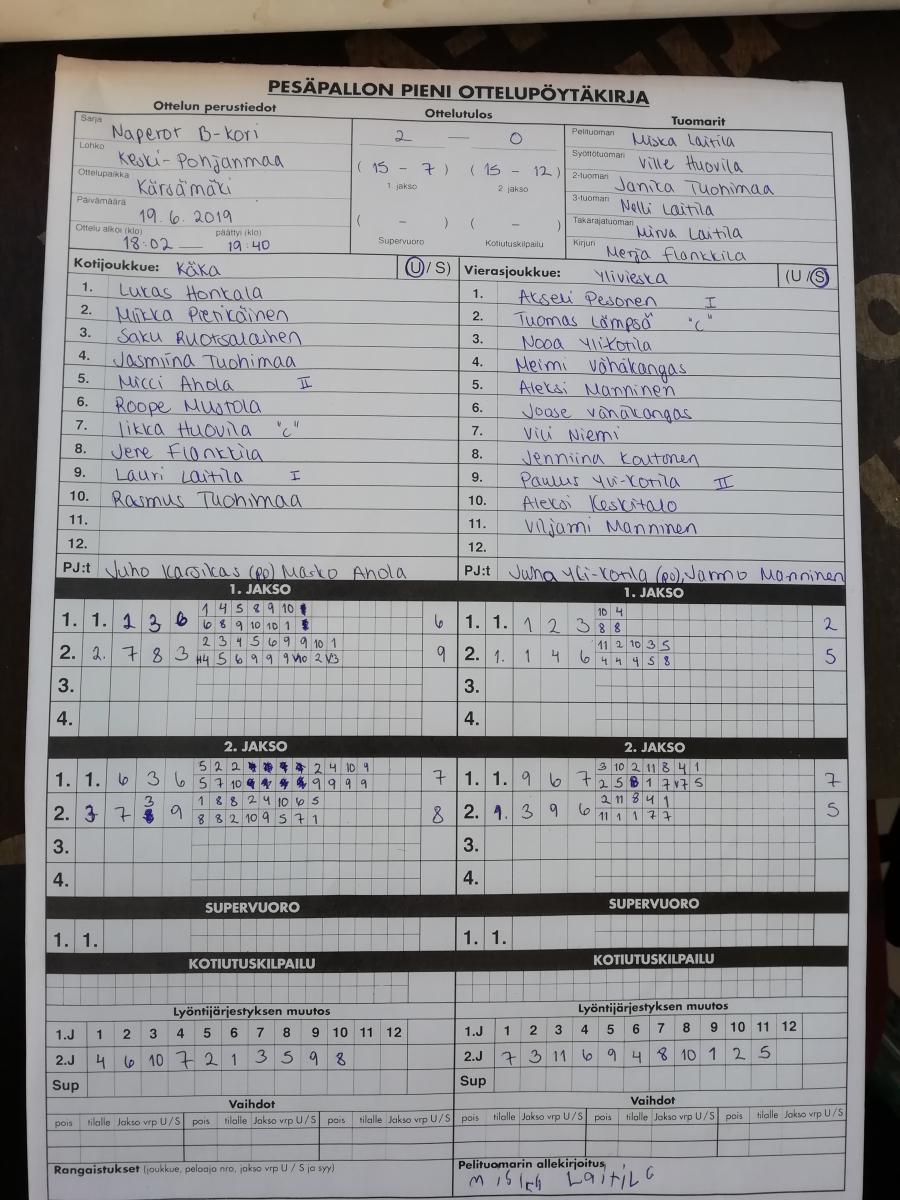 PESÄPALLON PIENI OTTELUPÖYTÄKIRJA
Ottelun perustiedot
Ottelutulos
Tuomarit
Sarja Naperot B-kori
Lohko Keski-Pohjanmaa
Ottelupaikka Kärsämäki
Päivämäärä 19.6.2019
Ottelu alkoi (klo) päättyi (klo)
18:02 — 19:40
2 — 0
( 15 - 7 ) ( 15 - 12 )
1 jakso 2. jakso
( - ) ( - )
Supervuoro Kotiutuskilpailu
Pelituomari Miska Laitila
Syöttötuomari Ville Huovila
2-tuomari Janika Tuohimaa
3-tuomari Nelli Laitila
Takarajatuomari Mirva Laitila
Kirjuri Merja Flankkila
Kotijoukkue: KäKa (U / S)
1. Lukas Honkala
2. Miikka Pienikäinen
3. Saku Ruotsalainen
4. Jasmiina Tuohimaa
5. Micci Ahola II
6. Roope Mustola
7. Iikka Huovila "C"
8. Jere Flankkila
9. Lauri Laitila I
10. Rasmus Tuohimaa
11.
12.
PJ:t Juho Karsikas (pp) Marko Ahola
Vierasjoukkue: Ylivieska (U / S)
1. Akseli Pesonen I
2. Tuomas Lämpsä "C"
3. Nooa Ylikotila
4. Meimi Vähäkangas
5. Aleksi Manninen
6. Joose Vähäkangas
7. Vili Niemi
8. Jenniina Koutonen
9. Paulus Yli-Kotila II
10. Aleksi Keskitalo
11. Viljami Manninen
12.
PJ:t Juha Yli-Kotila (pp), Jarmo Manninen
1. JAKSO
1 4 5 8 9 10
1. 1. 1 3 6 6 8 9 10 10 1 6
2 3 4 5 6 9 9 10 1
2. 2. 7 8 3 5 6 9 9 9 9
3.
4.
1. JAKSO
10 4
1. 1. 1 2 3 8 8 2
11 2 10 3 5
2. 1. 1 4 6 4 4 4 5 8 5
3.
4.
2. JAKSO
5 2 2 2 4 10 9
1. 1. 6 3 6 5 7 10 9 9 9 9 7
1 8 8 2 4 10 6 5
2. 3 7 3 9 8 8 2 10 9 5 7 1 8
3.
4.
2. JAKSO
3 10 2 11 8 4 1
1. 1. 9 6 7 2 5 8 1 7 v7 5 7
2 11 8 4 1
2. 1. 3 9 6 11 1 1 7 7 5
3.
4.
SUPERVUORO
1. 1.
SUPERVUORO
1. 1.
KOTIUTUSKILPAILU
KOTIUTUSKILPAILU
Lyöntijärjestyksen muutos
1.J 1 2 3 4 5 6 7 8 9 10 11 12
2.J 4 6 10 7 2 1 3 5 9 8
Sup
Lyöntijärjestyksen muutos
1.J 1 2 3 4 5 6 7 8 9 10 11 12
2.J 7 3 11 6 9 4 8 10 1 2 5
Sup
Vaihdot
pois tilalle Jakso vrp U / S pois tilalle Jakso vrp U / S pois tilalle Jakso vrp U / S
Vaihdot
pois tilalle Jakso vrp U / S pois tilalle Jakso vrp U / S pois tilalle Jakso vrp U / S
Rangaistukset (joukkue, pelaaja nro, jakso vrp U / S ja syy)
Pelituomarin allekirjoitus
Miska Laitila